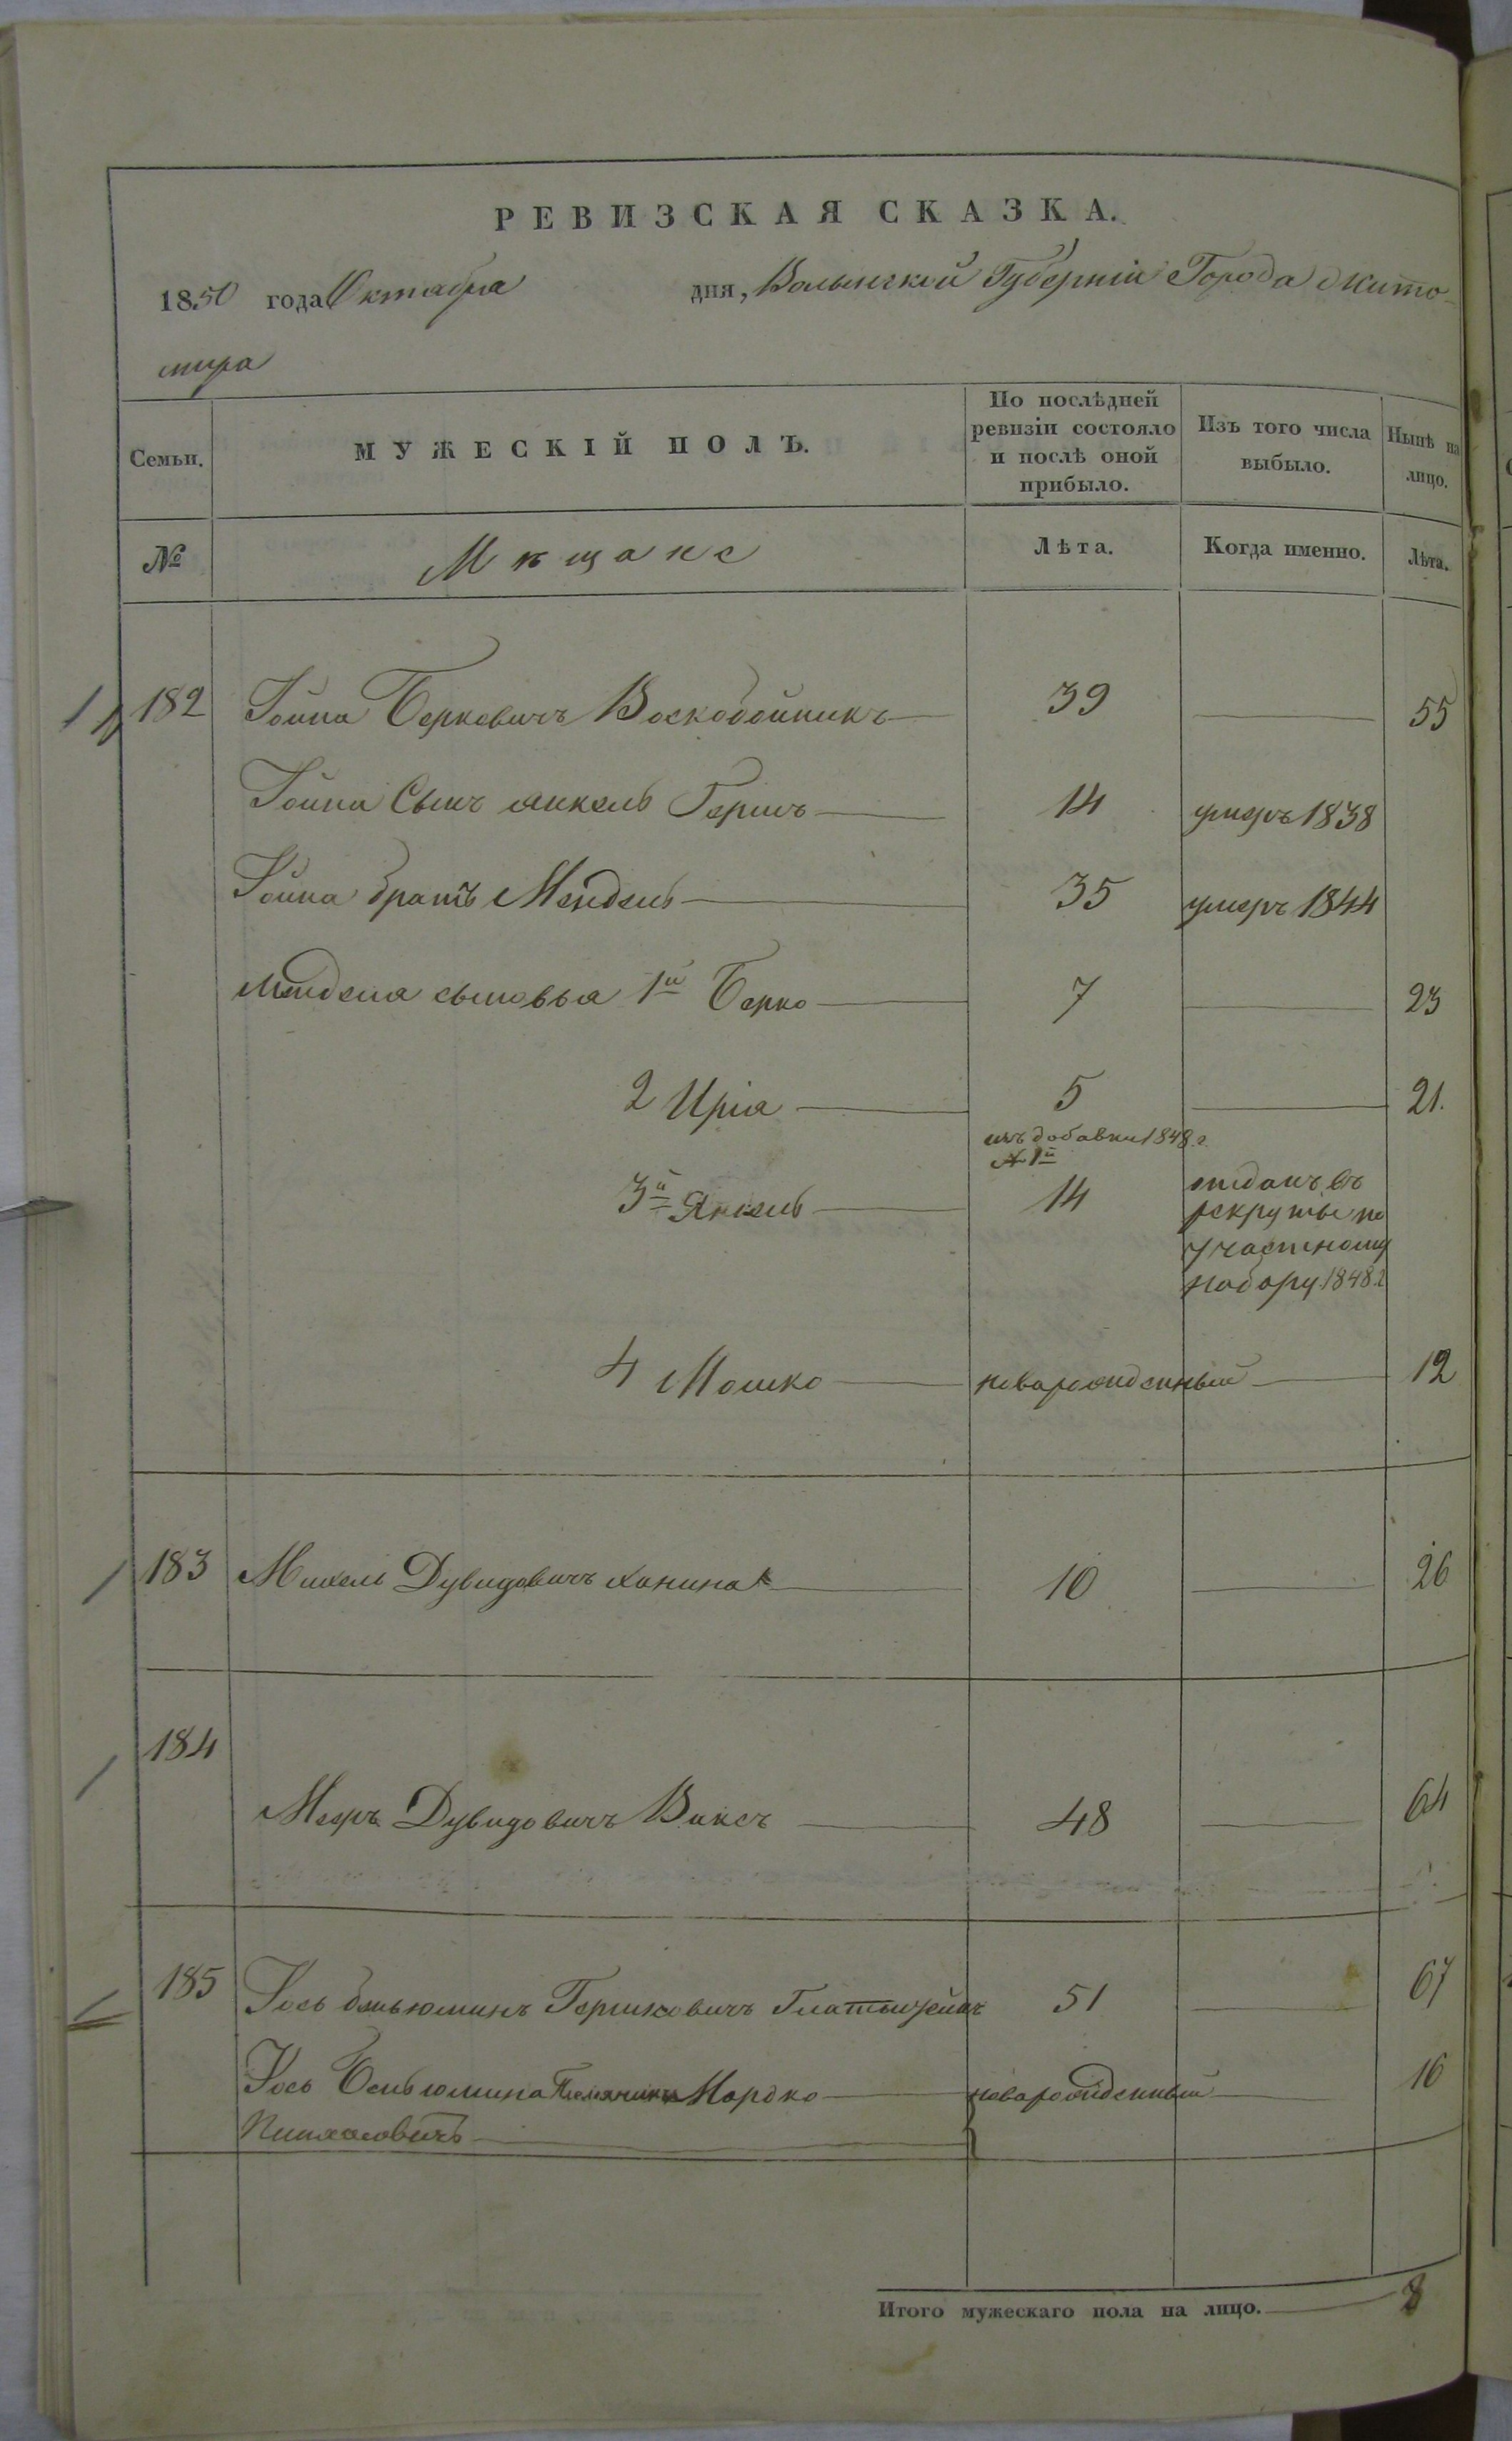 РЕВИЗСКАЯ СКАЗКА.
1850 года Октабра дня, Волынской Губерніи Города Жито-
мира
Семьи. МУЖЕСКІЙ ПОЛЪ. По послѣдней ревизіи состояло и послѣ оной прибыло. Изъ того числа выбыло. Нынѣ на лицо.
№ Мѣщане Лѣта. Когда именно. Лѣта.
182 Іойна Берковичъ Воскобойникъ 39 55
Іойни Сынъ Янкель Гершъ 14 умеръ 1838
Іойна братъ Мендель 35 умеръ 1844
Менделя сыновья 1й Берко 7 23
2 Иріа 5 21.
изъ добавки 1848 г.
№ 1й
3й Янкель 14 отданъ въ
рекруты по
участному
набору 1848 г
4 Мошко новарожденный 12
183 Михель Дувидовичъ Ханина 10 26
184
Мееръ ДувидовичъВаксъ 48 64
185 Іось беньюминъ Гершковичъ 51 67
Іось Беньюмина Племянникъ Мордко новарожденный 16
Пинхасовичъ
Итого мужескаго пола на лицо. 8